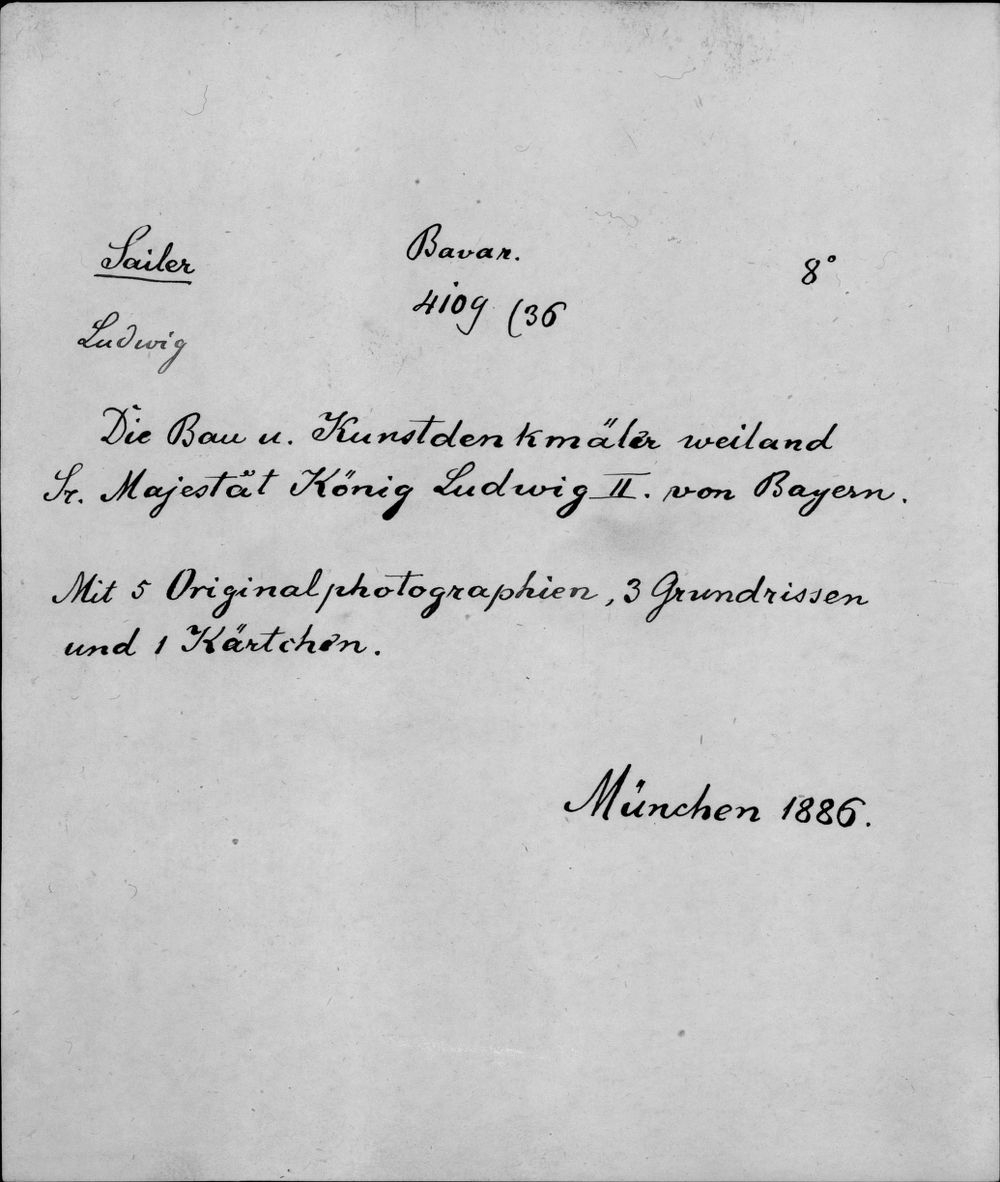 Sailer
Ludwig
Bavar.
4109 (36
8°
Die Bau u. Kunstdenkmäler weiland
Sr. Majestät König Ludwig II. von Bayern.
Mit 5 Originalphotographien, 3 Grundrissen
und 1 Kärtchen.
München 1886.